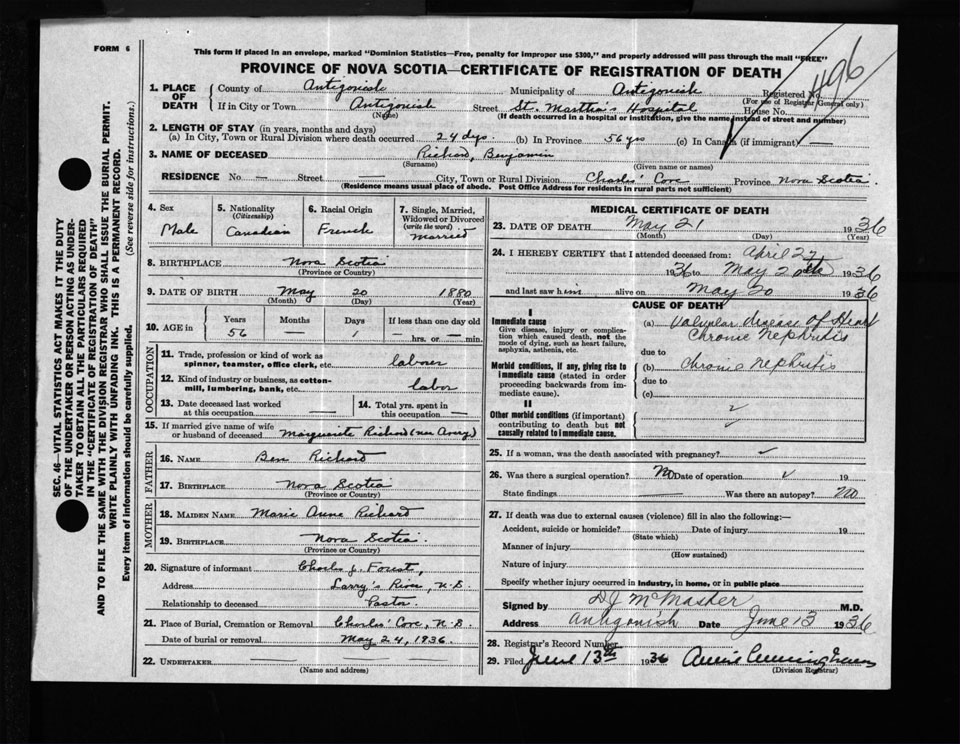 FORM 6
496
This form if placed in an envelope, marked "Dominion Statistics—Free, penalty for improper use $300," and properly addressed will pass through the mail "FREE"
PROVINCE OF NOVA SCOTIA—CERTIFICATE OF REGISTRATION OF DEATH
SEC. 46—VITAL STATISTICS ACT MAKES IT THE DUTY
OF THE UNDERTAKER OR PERSON ACTING AS UNDER-
TAKER TO OBTAIN ALL THE PARTICULARS REQUIRED
IN THE "CERTIFICATE OF REGISTRATION OF DEATH"
AND TO FILE THE SAME WITH THE DIVISION REGISTRAR WHO SHALL ISSUE THE BURIAL PERMIT.
WRITE PLAINLY WITH UNFADING INK. THIS IS A PERMANENT RECORD.
Every item of information should be carefully supplied. (See reverse side for instructions.)
1. PLACE OF DEATH County of Antigonish Municipality of Antigonish Registered No.
(For use of Registrar General only)
If in City or Town Antigonish Street St. Martha's Hospital House No.
(Name) (If death occurred in a hospital or institution, give the name instead of street and number)
2. LENGTH OF STAY (in years, months and days)
(a) In City, Town or Rural Division where death occurred 24 dys. (b) In Province 56 yrs (c) In Canada (if immigrant) —
3. NAME OF DECEASED Richard, Benjamin
(Surname) (Given name or names)
RESIDENCE No — Street — City, Town or Rural Division Charlos' Cove Province Nova Scotia.
(Residence means usual place of abode. Post Office Address for residents in rural parts not sufficient)
4. Sex Male
5. Nationality (Citizenship) Canadian
6. Racial Origin French
7. Single, Married, Widowed or Divorced (write the word) Married
8. BIRTHPLACE Nova Scotia
(Province or Country)
9. DATE OF BIRTH May 20 1880
(Month) (Day) (Year)
10. AGE in Years 56 Months — Days — If less than one day old — hrs. or — min.
OCCUPATION
11. Trade, profession or kind of work as spinner, teamster, office clerk, etc. laborer
12. Kind of industry or business, as cotton-mill, lumbering, bank, etc. labor
13. Date deceased last worked at this occupation — 14. Total yrs. spent in this occupation —
15. If married give name of wife or husband of deceased Marguerite Richard (nee Avery)
FATHER
16. NAME Ben Richard
17. BIRTHPLACE Nova Scotia
(Province or Country)
MOTHER
18. MAIDEN NAME Marie Anne Richard
19. BIRTHPLACE Nova Scotia
(Province or Country)
20. Signature of informant Charles J. Forest,
Address Larry's River, N.S.
Relationship to deceased Pastor.
21. Place of Burial, Cremation or Removal Charlos' Cove, N.S.
Date of burial or removal May 24, 1936.
22. UNDERTAKER — — —
(Name and address)
MEDICAL CERTIFICATE OF DEATH
23. DATE OF DEATH May 21 1936
(Month) (Day) (Year)
24. I HEREBY CERTIFY that I attended deceased from: April 27
1936 to May 20th 1936
and last saw him alive on May 20 1936
CAUSE OF DEATH
I
Immediate cause
Give disease, injury or complication which caused death, not the mode of dying, such as heart failure, asphyxia, asthenia, etc.
(a) Valvular disease of Heart
Chronic Nephritis
due to
Morbid conditions, if any, giving rise to immediate cause (stated in order proceeding backwards from immediate cause).
(b) Chronic Nephritis
due to
(c)
II
Other morbid conditions (if important) contributing to death but not causally related to immediate cause.
25. If a woman, was the death associated with pregnancy?
26. Was there a surgical operation? No Date of operation 19
State findings — Was there an autopsy? No
27. If death was due to external causes (violence) fill in also the following:—
Accident, suicide or homicide? Date of injury 19
(State which)
Manner of injury
(How sustained)
Nature of injury
Specify whether injury occurred in industry, in home, or in public place
Signed by D J McMaster M.D.
Address Antigonish Date June 13 1936
28. Registrar's Record Number
29. Filed June 13th 1936 Annie Cunningham
(Division Registrar)